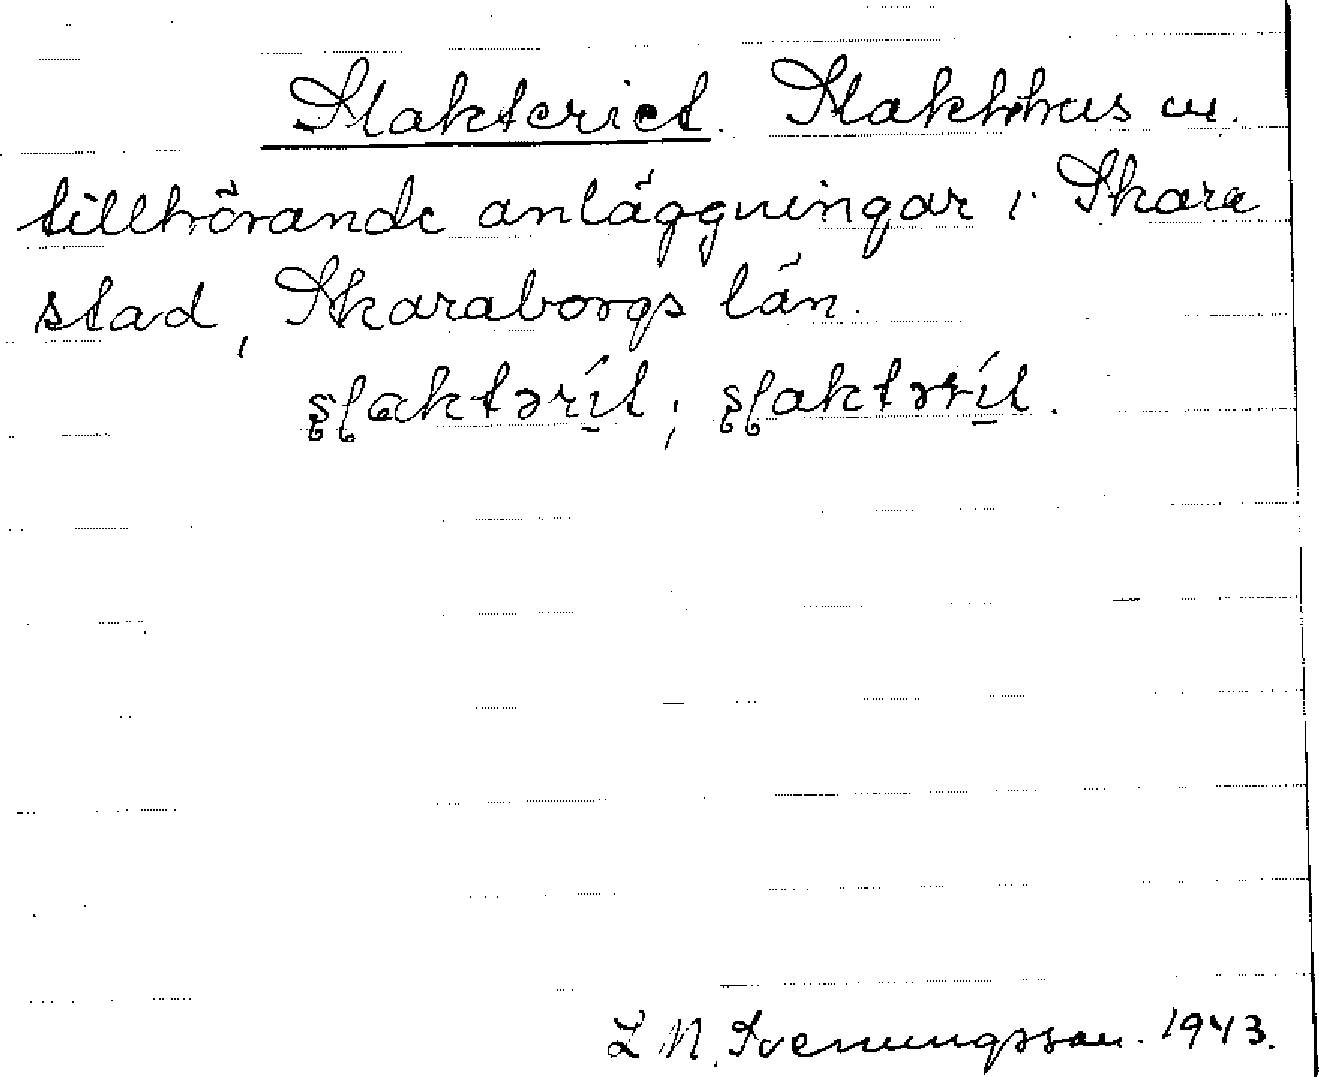 Slakteriet. Slakthus m.
tillhörande anläggningar i Skara
stad, Skaraborgs län.
ʂɭaktərít; ʂɭaktərít.
L N. Svenungsson. 1943.